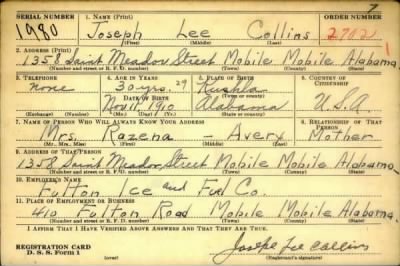 7
SERIAL NUMBER 1. NAME (Print) ORDER NUMBER
1980 Joseph Lee Collins 2702
(First) (Middle) (Last)
2. ADDRESS (Print)
1358 Saint Meador Street Mobile Mobile Alabama.
(Number and street or R. F. D. number) (Town) (County) (State)
3. TELEPHONE 4. AGE IN YEARS 5. PLACE OF BIRTH 6. COUNTRY OF CITIZENSHIP
none 30 yrs. 29 Kushla
DATE OF BIRTH (Town or county)
Nov 11, 1910 Alabama U.S.A
(Exchange) (Number) (Mo.) (Day) (Yr.) (State or country)
7. NAME OF PERSON WHO WILL ALWAYS KNOW YOUR ADDRESS 8. RELATIONSHIP OF THAT PERSON
Mrs. Razena - Avery Mother
(Mr., Mrs., Miss) (First) (Middle) (Last)
9. ADDRESS OF THAT PERSON
1358 Saint Meador Street Mobile Mobile Alabama.
(Number and street or R. F. D. number) (Town) (County) (State)
10. EMPLOYER'S NAME
Fulton Ice and Fuel Co.
11. PLACE OF EMPLOYMENT OR BUSINESS
410 Fulton Road Mobile Mobile Alabama.
(Number and street or R. F. D. number) (Town) (County) (State)
I AFFIRM THAT I HAVE VERIFIED ABOVE ANSWERS AND THAT THEY ARE TRUE.
REGISTRATION CARD
D. S. S. Form 1 Joseph Lee Collins
(Registrant's signature)